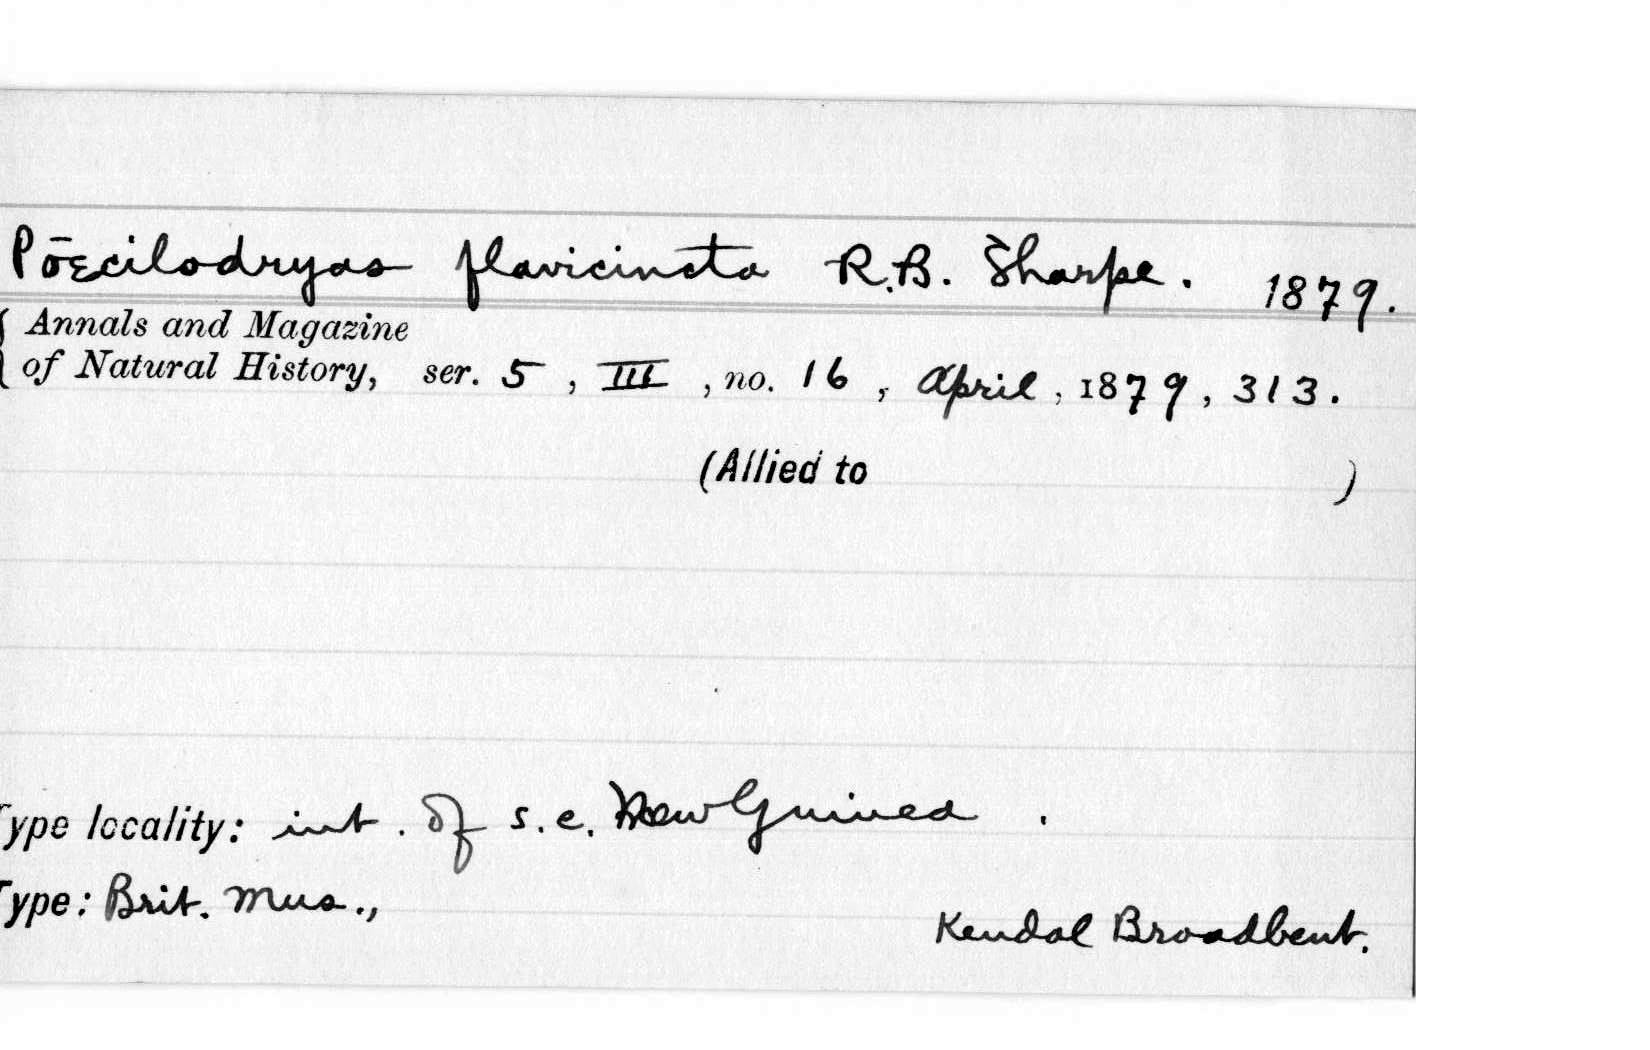 Pōēcilodryas flavicincta R.B. Sharpe. 1879.
{ Annals and Magazine
of Natural History, ser. 5, III, no. 16, April, 1879, 313.
(Allied to )
Type locality: int. of s.e. New Guinea.
Type: Brit. Mus.,
Kendal Broadbent.